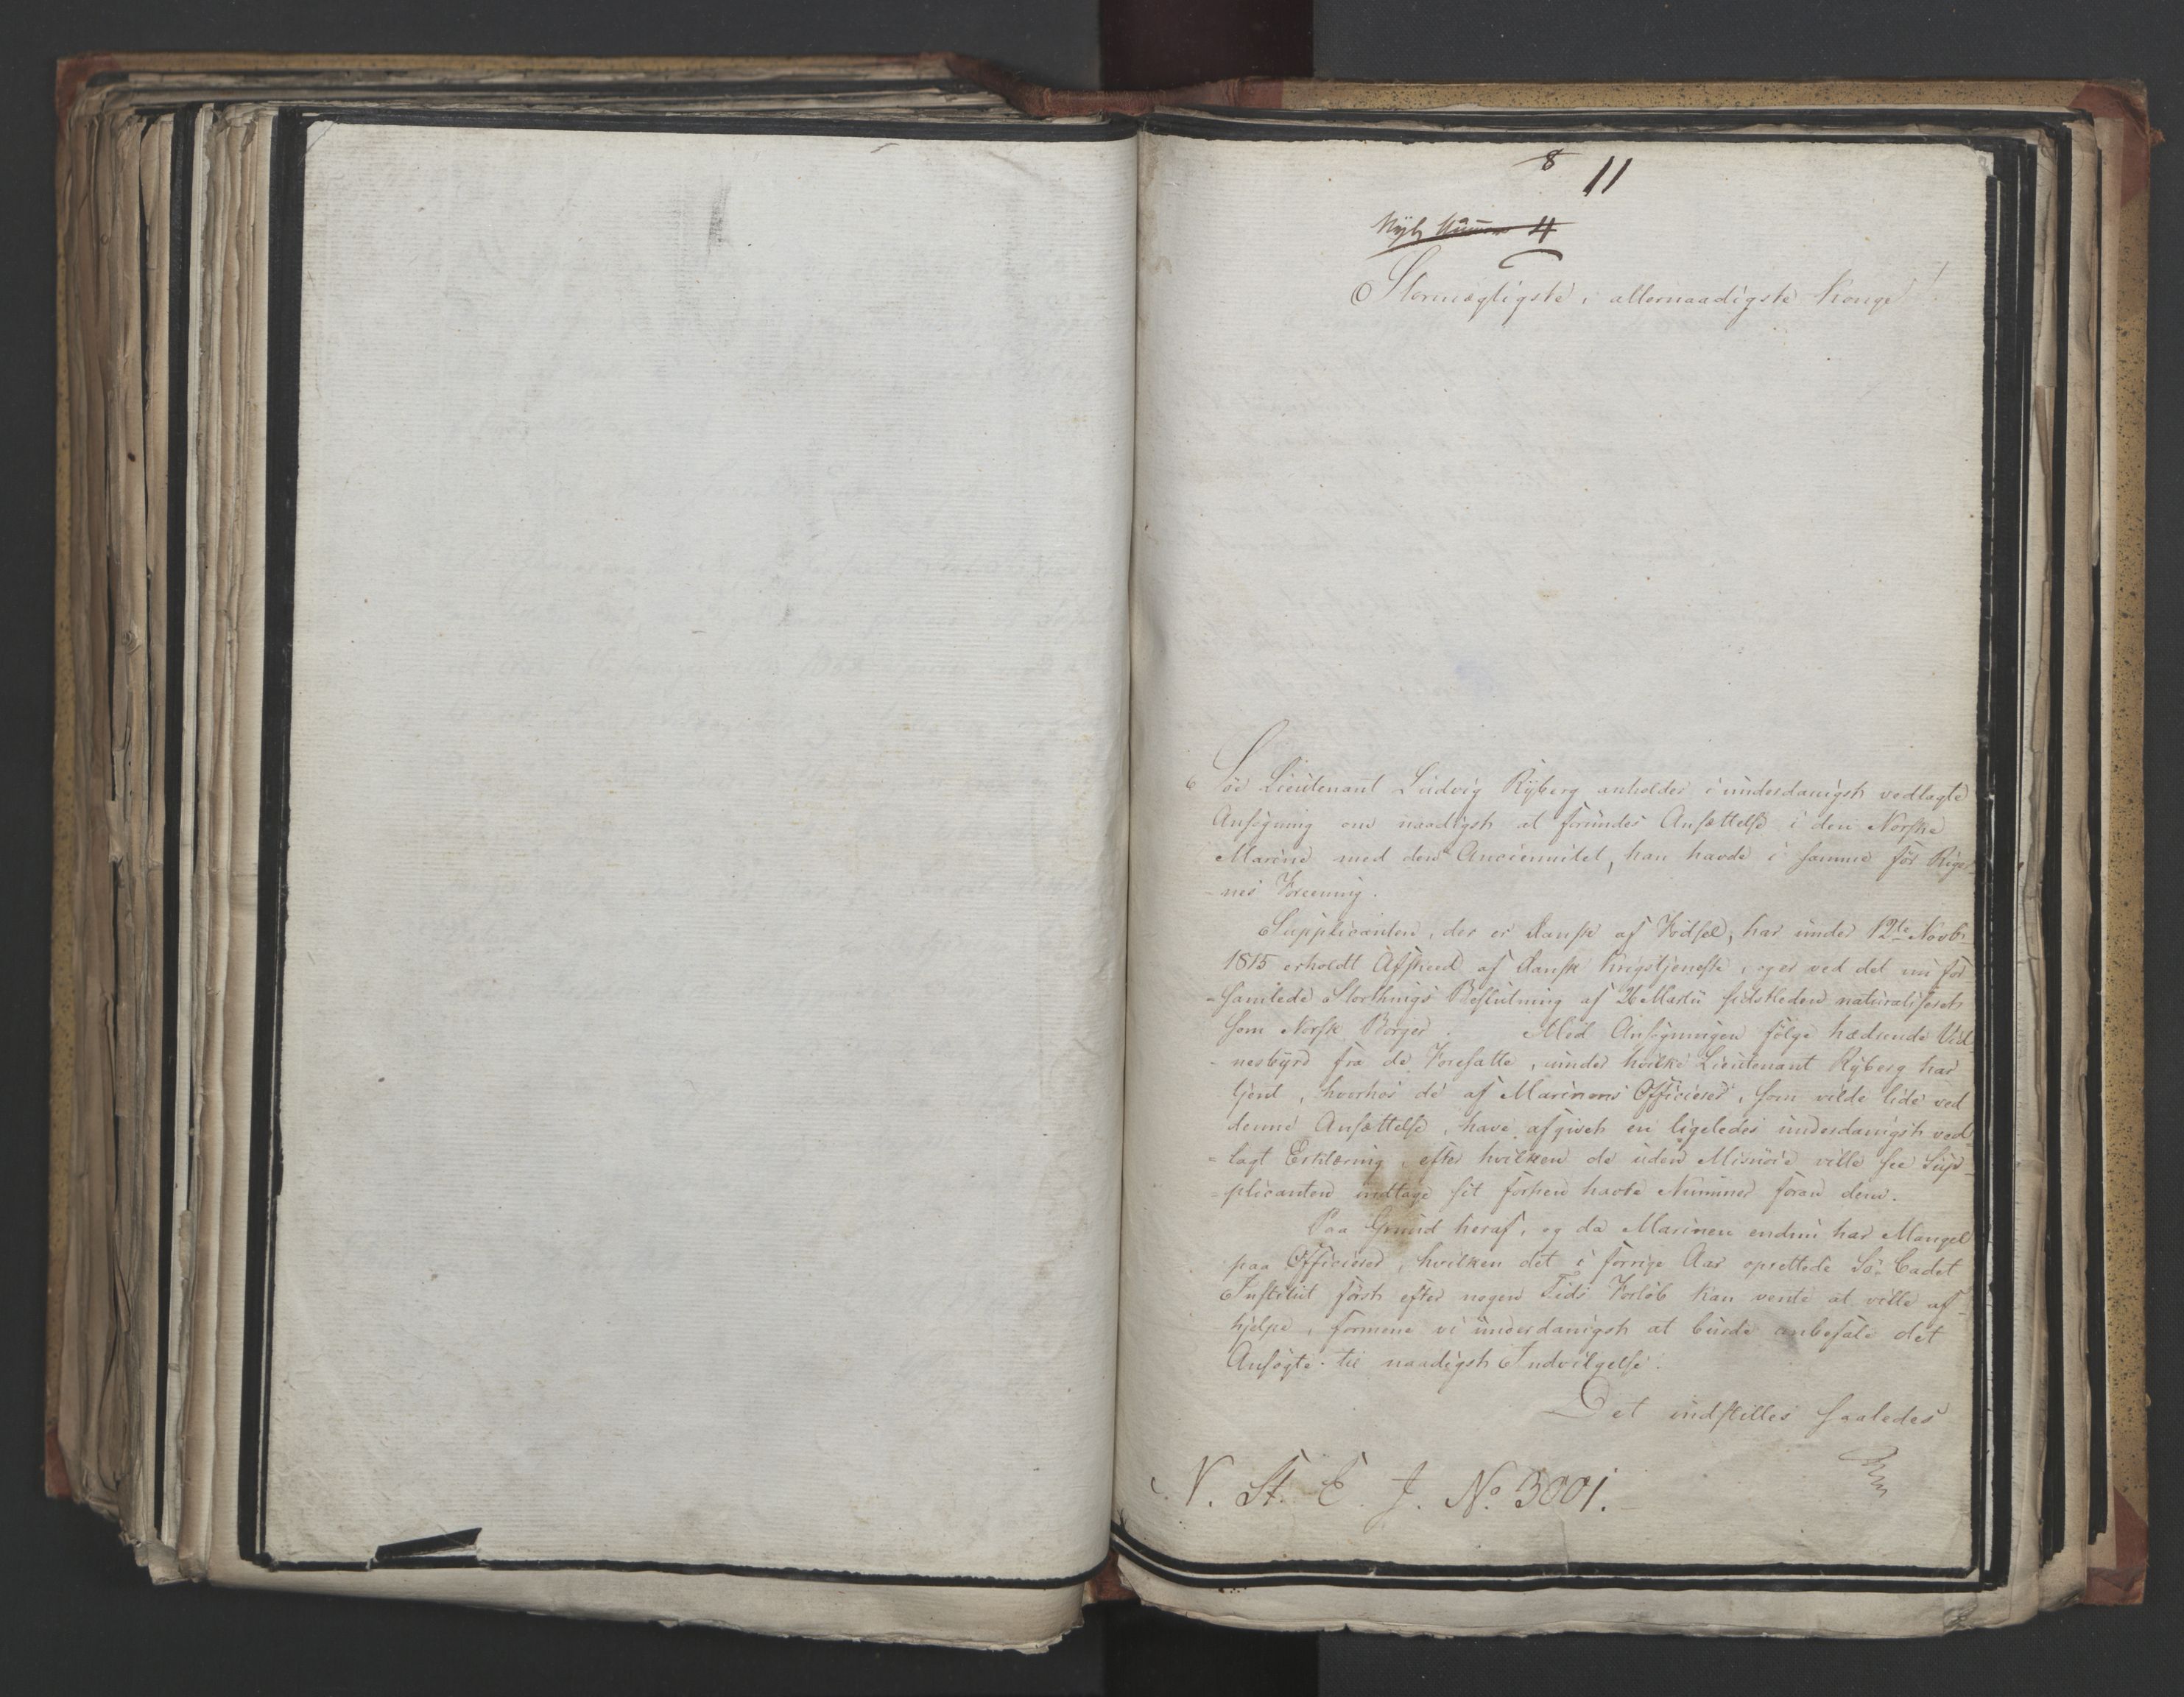 8
11
Nyt Numer 4
Stormægtigste, allernaadigste Konge!
Söe Lieutenant Ludvig Ryberg anholder i underdanigst vedlagte
Ansögning om naadigst at forundes Ansættelse i den Norske
Marine med den Anciennitet, han havde i samme för Riger-
-nes Forening.
Supplicanten, der er dansk af Födsel, har under 12te Novbr
1815 erholdt Afskeed af dansk Krigstjeneste, og er ved det nu for
-samlede Storthings Beslutning af 26 Martii sidstleden naturaliseret
som Norsk Borger. Med Ansögningen fölge hædrende Vid-
-nesbyrd fra de Foresatte, under hvilke Lieutenant Ryberg har
tjent, hvorhos de af Marinens Officierer, som vilde lide ved
denne Ansættelse, have afgivet en ligeledes underdanigst ved-
=lagt Erklæring, efter hvilken de uden Misnöie ville see Sup-
=plicanten indtage sit forhen havte Nummer foran dem.
Paa Grund heraf, og da Marinen endnu har Mangel
paa Officierer, hvilken det i forrige Aar oprettede Sö-Cadet
Institut först efter nogen Tids Forlöb kan vente at ville af-
hjelpe, formene vi underdanigst at burde anbefale det
Ansögte til naadigst Indvilgelse.
Det indstilles saaledes
N. St. E. J. No 3001.